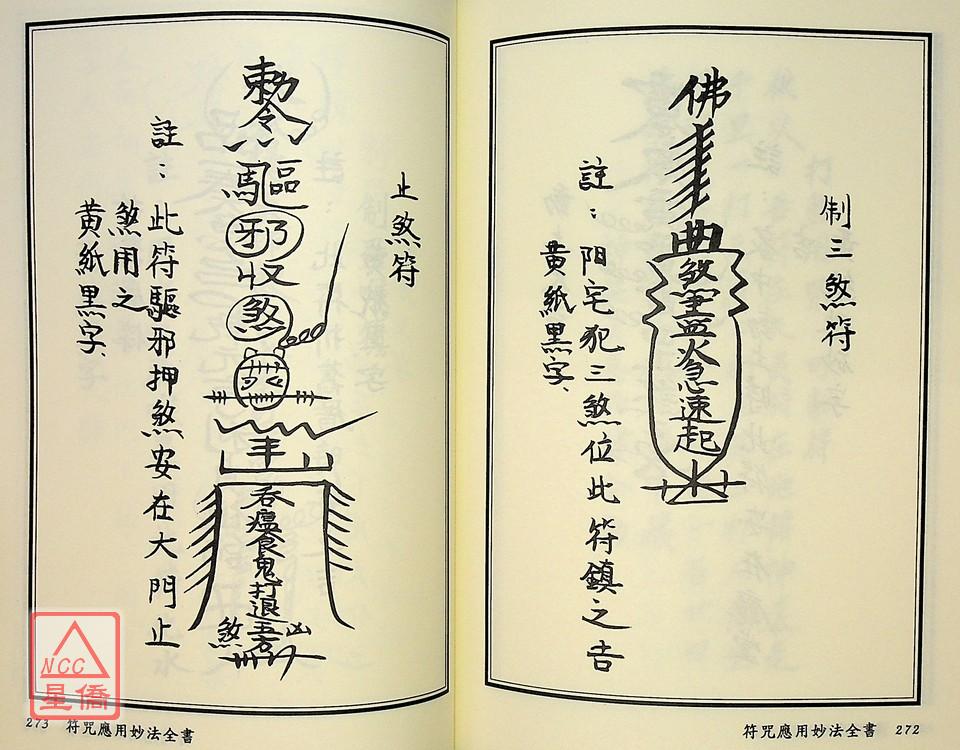 制三煞符
佛
煞
急速起
註：阳宅犯三煞位此符鎮之吉
黃紙黑字、
符咒應用妙法全書 272
止煞符
敕令
驅
邪
收
煞
吞瘟食鬼打退五方
凶
煞
註：此符驅邪押煞安在大門止
煞用之
黃紙黑字、
273 符咒應用妙法全書
NCC
星僑